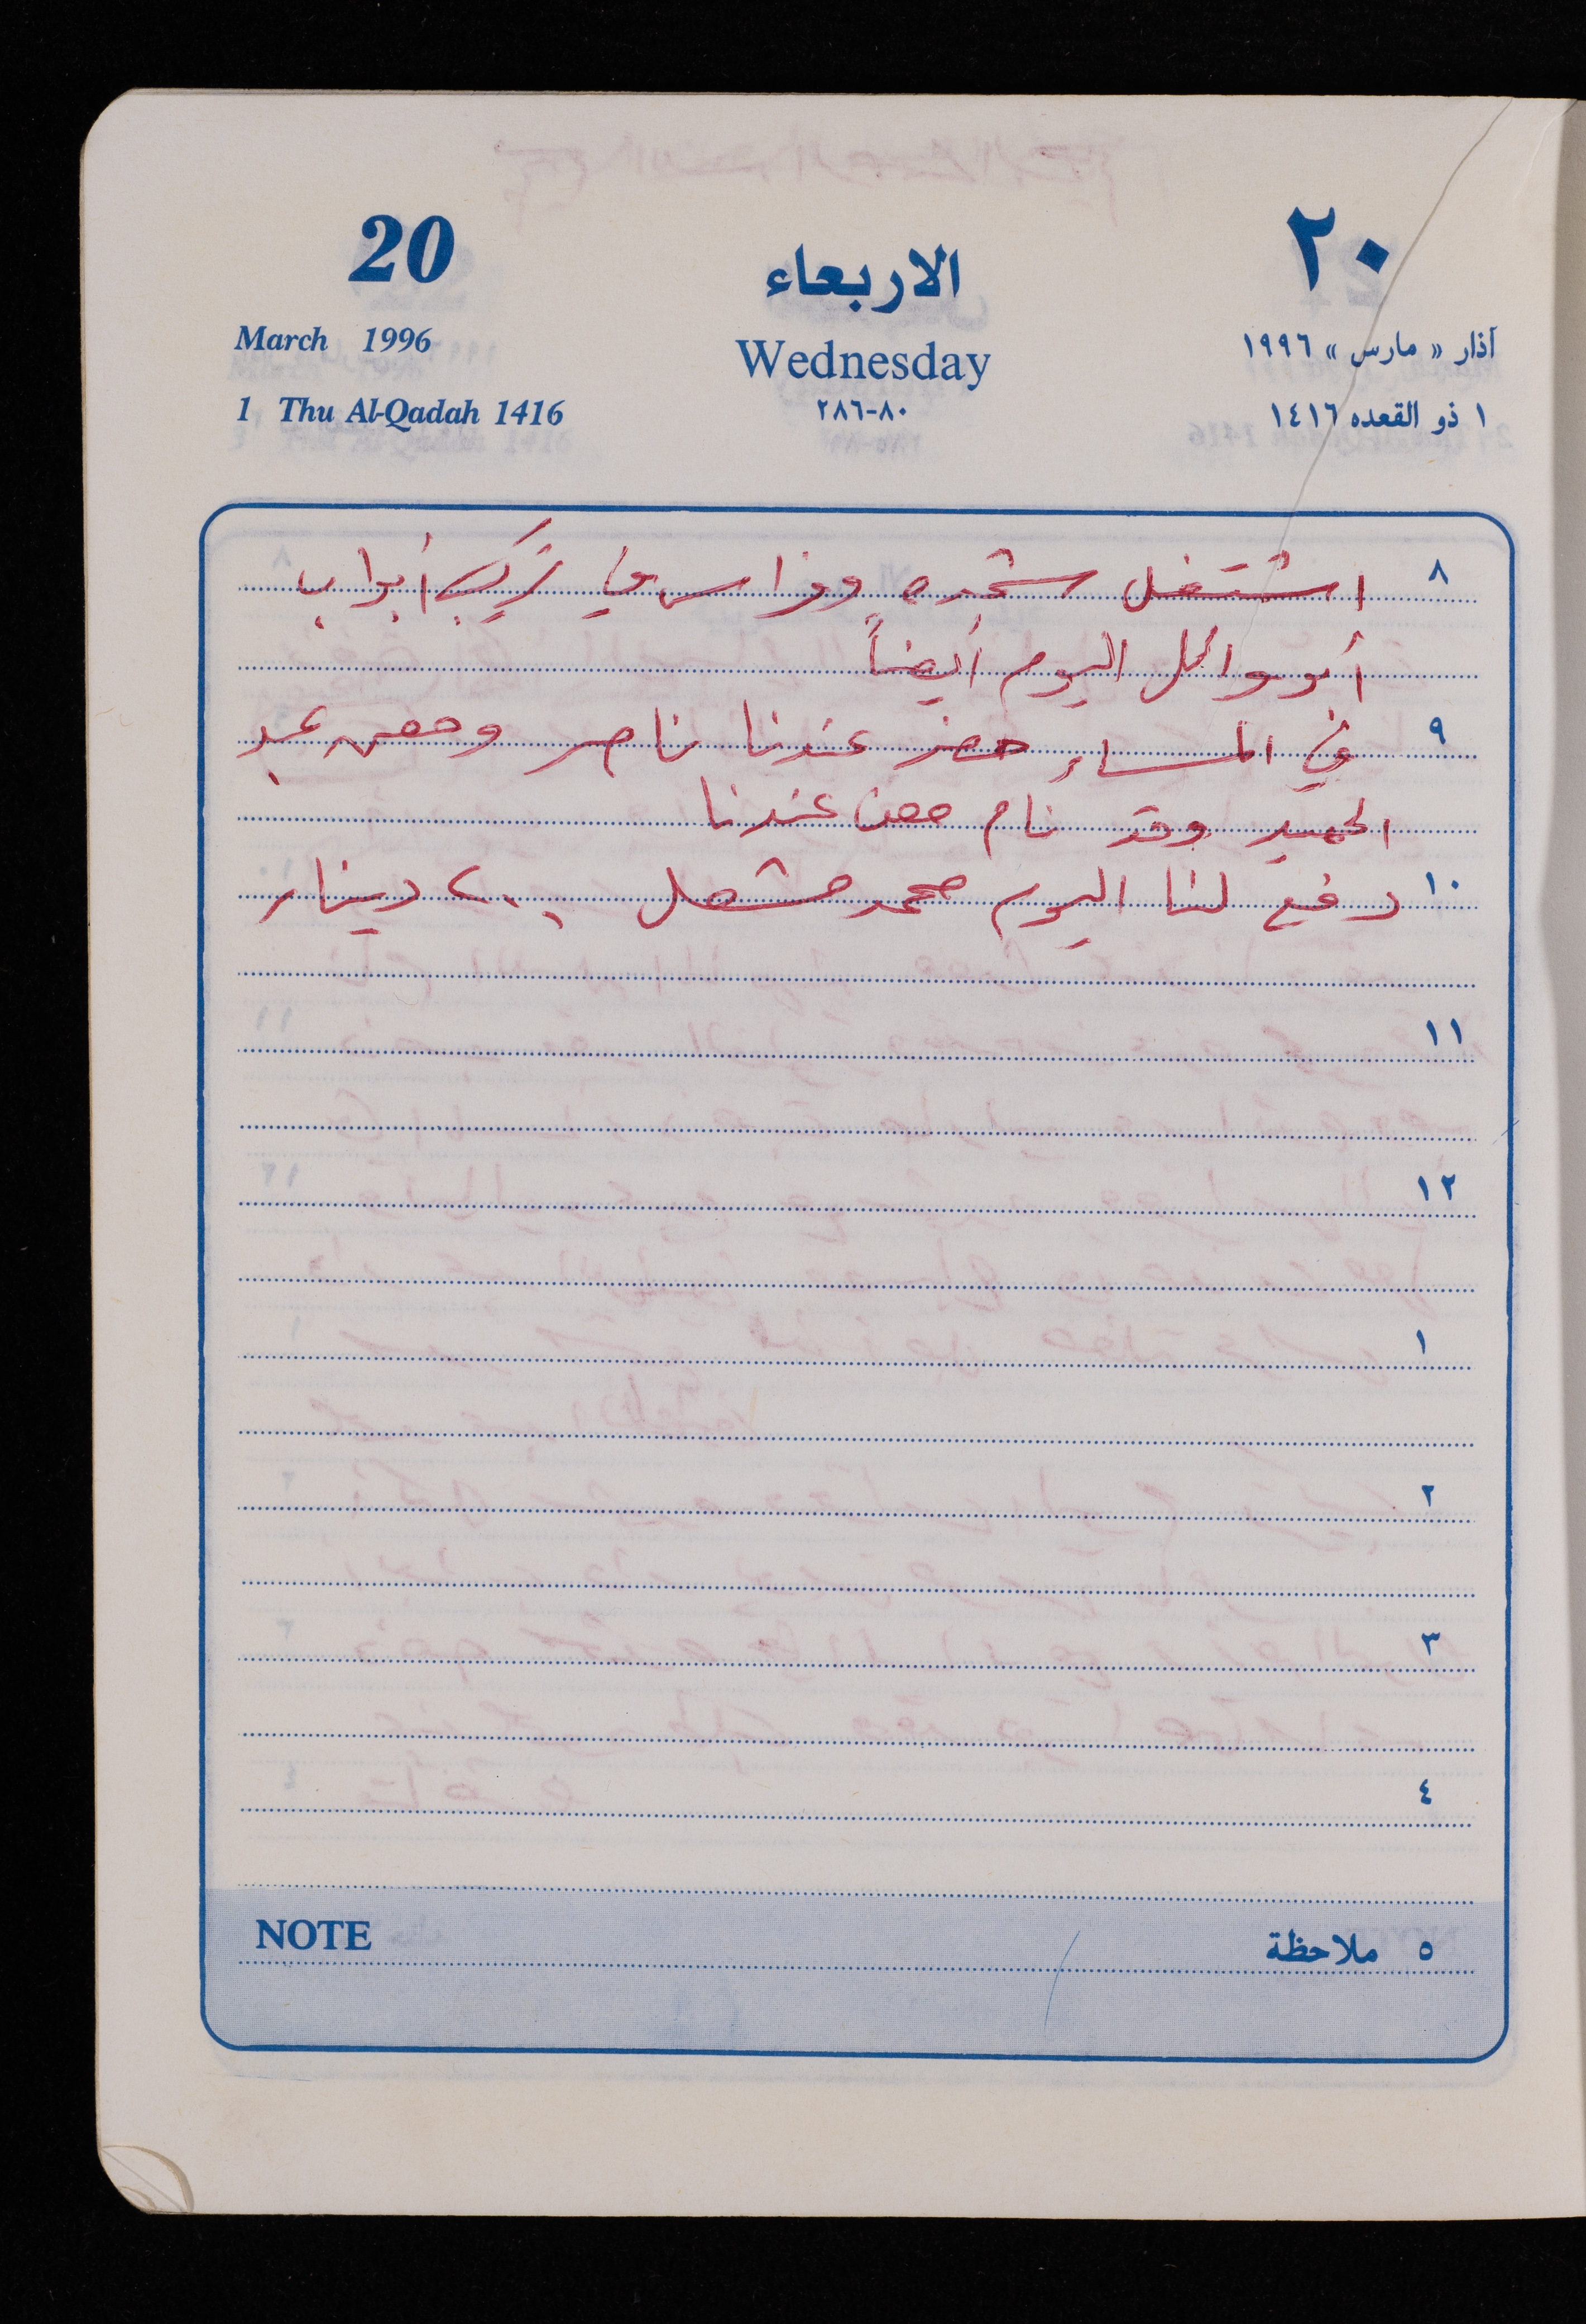 20 الاربعاء ٢٠
March 1996 Wednesday آذار « مارس » ١٩٩٦
1 Thu Al-Qadah 1416 ٨٠-٢٨٦ ١ ذو القعده ١٤١٦
٨ اشتغل شجره وفراس في تركيب أبواب
أبو وائل اليوم أيضاً
٩ في المساء حضر عندنا ناصر ومعن عبد
الحميد وقد نام معن عندنا
١٠ دفع لنا اليوم محمد مشعل ٢٠٠ دينار
١١
١٢
١
٢
٣
٤
NOTE ٥ ملاحظة